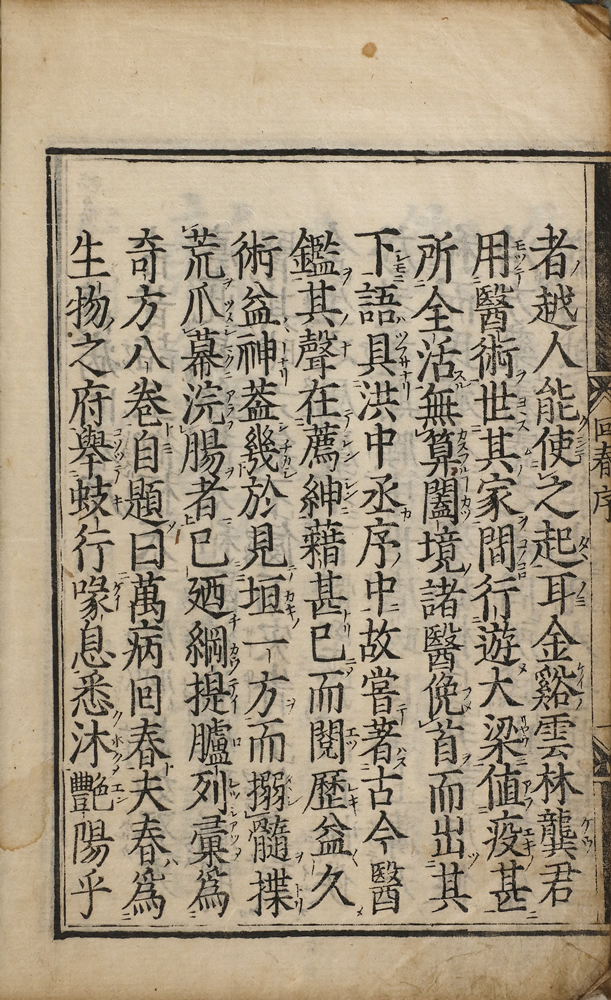 者越人能使之起耳金谿雲林龔君
用醫術世其家間行遊大梁値疫甚
所全活無算闔境諸醫俛首而出其
下語具洪中丞序中故嘗著古今醫
鑑其聲在薦紳藉甚已而閱歷益久
術益神蓋幾於見垣一方而搦髓揲
荒爪幕浣腸者已廼綱提臚列彙爲
奇方八卷自題曰萬病回春夫春爲
生物之府舉蚑行喙息悉沐艷陽乎
回春序